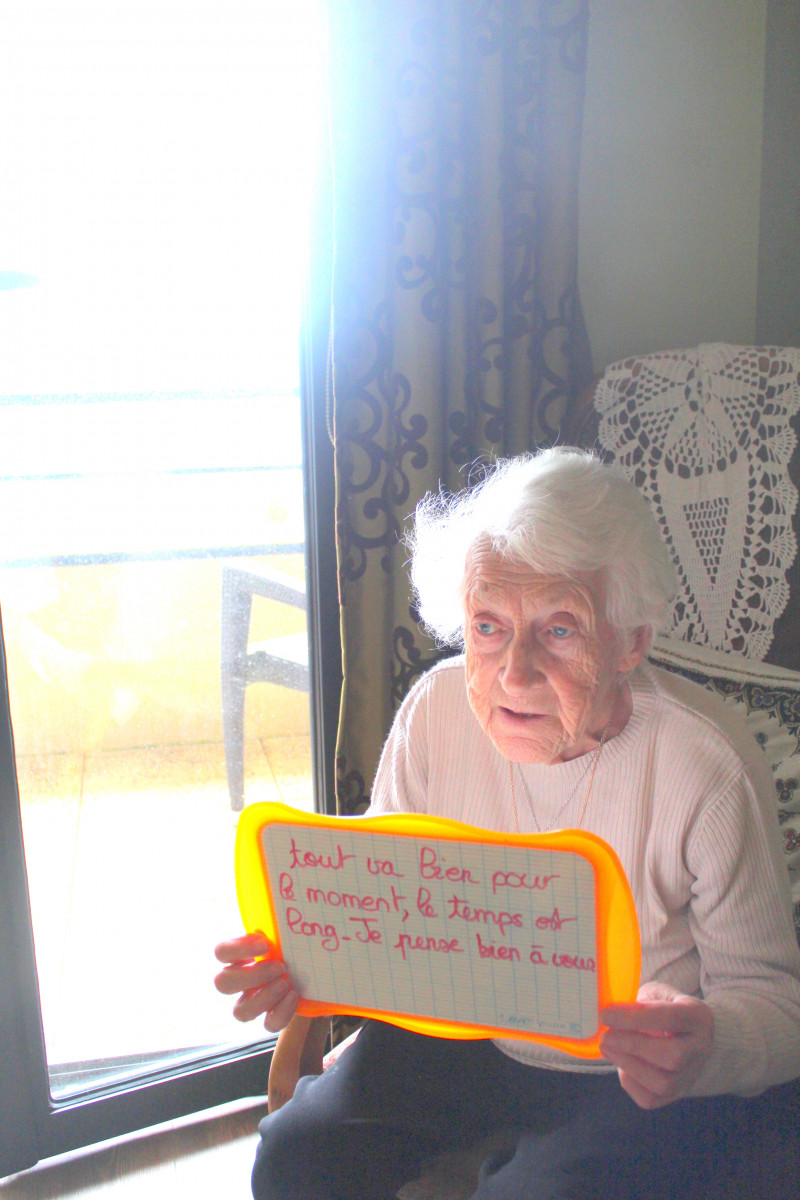 tout va bien pour
le moment, le temps est
long - Je pense bien à vous